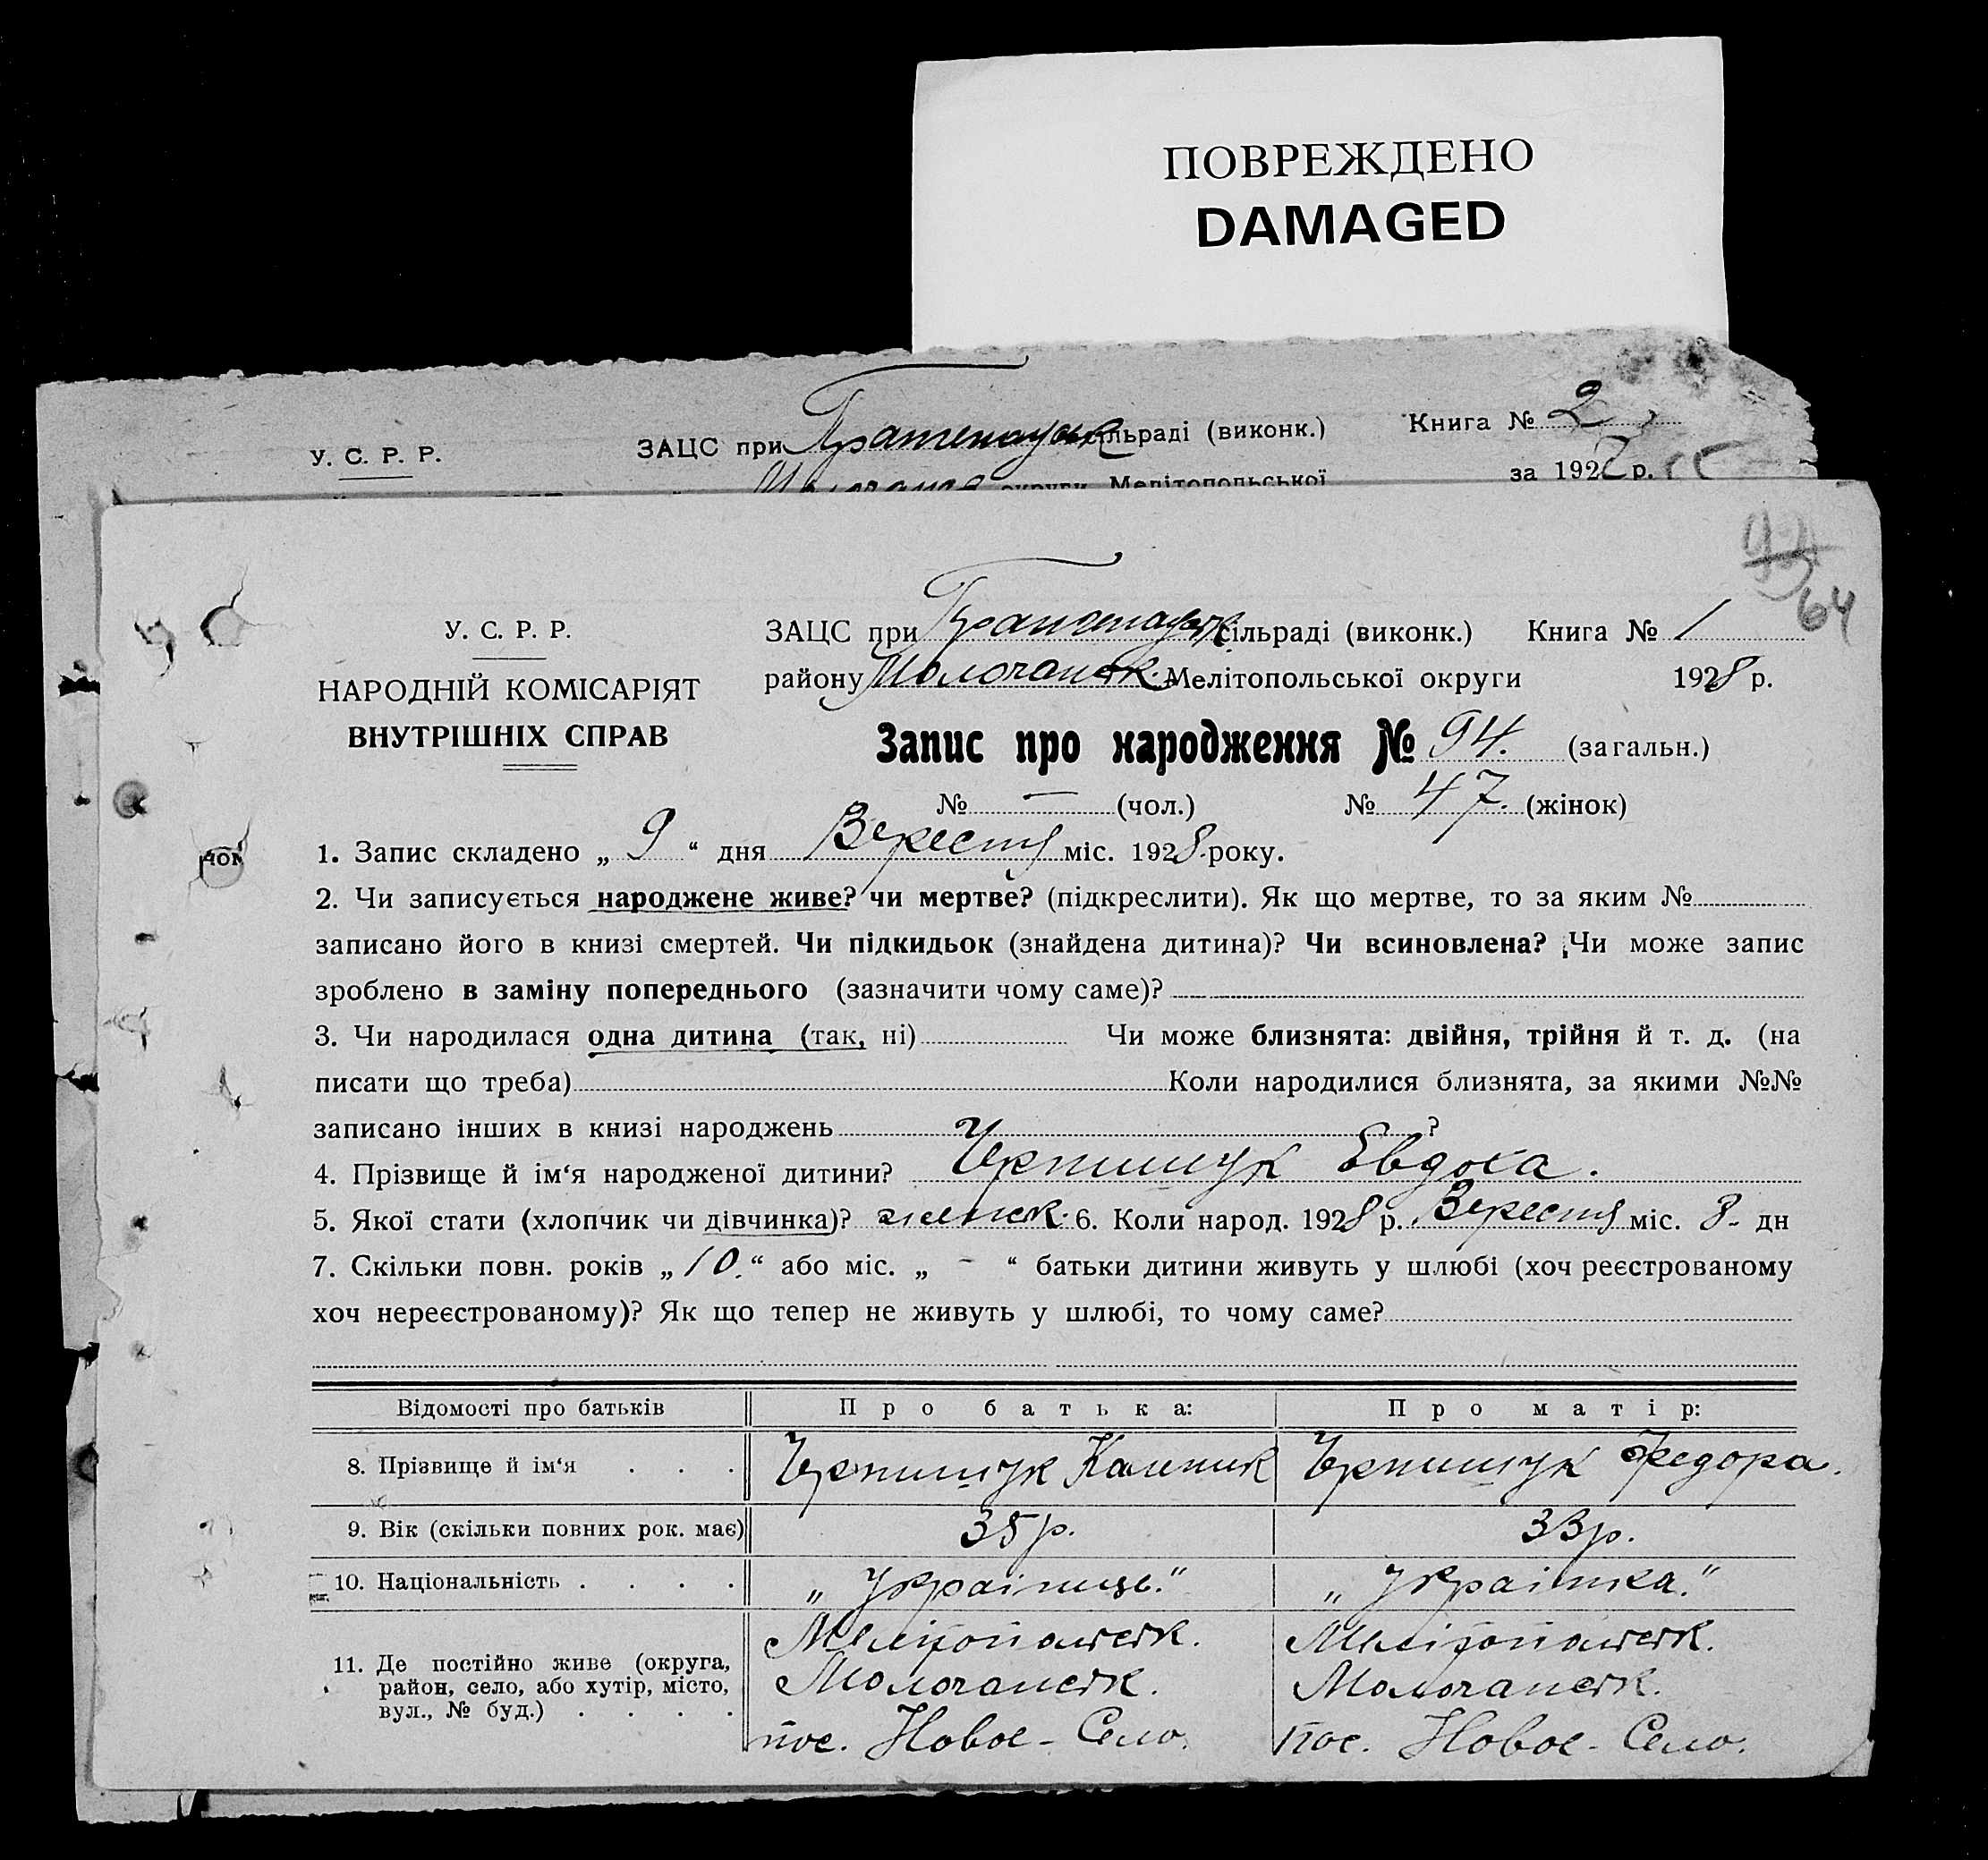 ПОВРЕЖДЕНО
DAMAGED
У. С. Р. Р.
ЗАЦС при сільраді (виконк.)
Книга № 2
округи Мелітопольської
за 1927 р.
92
64
У. С. Р. Р.
НАРОДНІЙ КОМІСАРІЯТ
ВНУТРІШНІХ СПРАВ
ЗАЦС при сільраді (виконк.) Книга № 1
району Молочанськ. Мелітопольської округи 1928 р.
Запис про народження № 94. (загальн.)
№ — (чол.) № 47. (жінок)
1. Запис складено „ 9 “ дня Вересня міс. 1928 року.
2. Чи записується народжене живе? чи мертве? (підкреслити). Як що мертве, то за яким №
записано його в книзі смертей. Чи підкидьок (знайдена дитина)? Чи всиновлена? Чи може запис
зроблено в заміну попереднього (зазначити чому саме)?
3. Чи народилася одна дитина (так, ні) Чи може близнята: двійня, трійня й т. д. (на
писати що треба) Коли народилися близнята, за якими №№
записано інших в книзі народжень ?
4. Прізвище й ім‘я народженої дитини? Евдоха.
5. Якої стати (хлопчик чи дівчинка)? женськ. 6. Коли народ. 1928 р. Вересня міс. 8 - дн
7. Скільки повн. років „ 10. “ або міс. „ - “ батьки дитини живуть у шлюбі (хоч реєстрованому
хоч нереєстрованому)? Як що тепер не живуть у шлюбі, то чому саме?
Відомості про батьків Про батька: Про матір:
8. Прізвище й ім‘я . . . Каленик Федора.
9. Вік (скільки повних рок. має) 35 р. 33 р.
10. Національність . . . . „ Українець. “ „ Українка. “
11. Де постійно живе (округа, Мелітопольськ. Мелітопольськ.
район, село, або хутір, місто, Молочанськ. Молочанськ.
вул., № буд.) . . . . пос. Новое - Село. пос. Новое - Село.